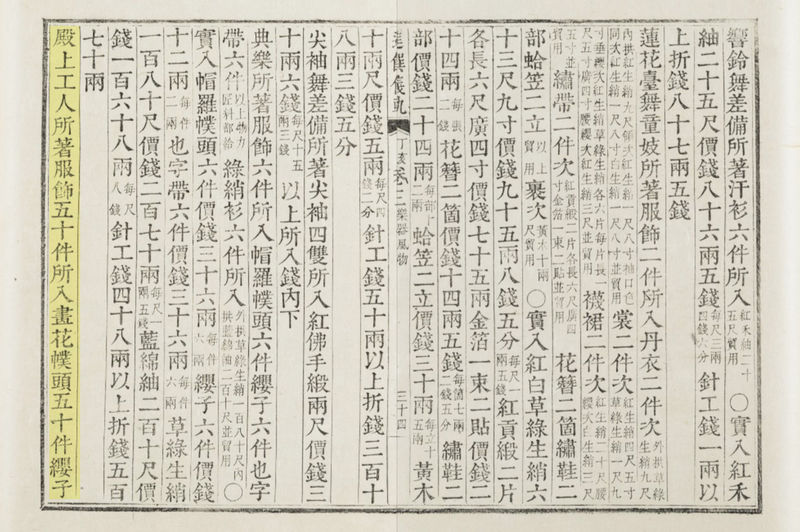 響鈴舞差備所著汗衫六件所入紅禾紬二十五尺貿用○實入紅禾
紬二十五尺價錢八十六兩五錢每尺三兩四錢六分針工錢一兩以
上折錢八十七兩五錢
蓮花臺舞童妓所著服飾二件所入丹衣二件次外拱草綠生綃九尺
內拱紅生綃九尺領次紅生綃一尺八寸袖口色同次紅生綃一尺八寸白生綃一尺八寸並貿用裳二件次紅生綃四尺五寸草綠生綃一尺九
寸垂纓次紅生綃草綠生綃各六片每片長尺五寸廣四寸腰纓次紅生綃三尺並貿用襪裙二件次紅生綃二十尺腰纓次白生綃三尺
五寸並貿用繡帶二件次紅貢緞二片各長六尺廣四寸金箔一束二貼並貿用花簪二箇繡鞋二
部蛤笠二立以上貿用裹次黃木十兩尺貿用○實入紅白草綠生綃六
十三尺九寸價錢九十五兩八錢五分每尺一兩五錢紅貢緞二片
各長六尺廣四寸價錢七十五兩金箔一束二貼價錢二
十四兩每張二錢花簪二箇價錢十四兩五錢每箇七兩二錢五分繡鞋二
部價錢二十四兩每部十二兩蛤笠二立價錢三十兩每立十五兩黃木
進饌儀軌 丁亥 卷三 樂器風物 三十四
十兩尺價錢五兩每尺四錢二分針工錢五十兩以上折錢三百十
八兩三錢五分
尖袖舞差備所著尖袖四雙所入紅佛手緞兩尺價錢三
十兩六錢每尺十五兩三錢以上所入錢內下
典樂所著服飾六件所入帽羅幞頭六件纓子六件也字
帶六件以上物力匠科部給綠綃衫六件所入外拱草綠生綃一百八十尺內拱藍綿紬二百十尺並貿用○
實入帽羅幞頭六件價錢三十六兩每件六兩纓子六件價錢
十二兩每件二兩也字帶六件價錢三十六兩每件六兩草綠生綃
一百八十尺價錢二百七十兩每尺一兩五錢藍綿紬二百十尺價
錢一百六十八兩每尺八錢針工錢四十八兩以上折錢五百
七十兩
殿上工人所著服飾五十件所入畫花幞頭五十件纓子